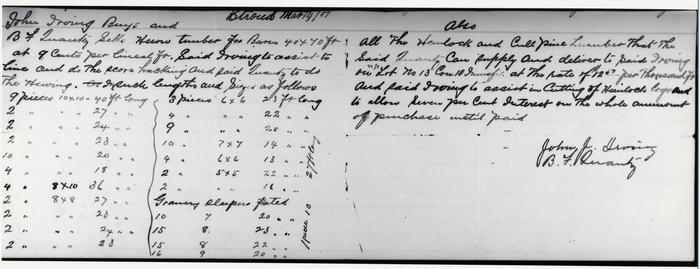 Stroud Mar 14/01
John Irving Buys and
B. F. Quantz Sells Hewn timber for Barn 40 x 70 ft
at 9 Cents per lineal ft, Said Irving to assist to
line and do the Scors tracking and said Quantz to do
the Hewing. Such lengths and Sizes as follows
9 pieces 10 x 10 - 40 ft long
2 " " 27 " "
2 " " 24 " "
2 " " 23 " "
10 " " 20 " "
4 " " 18 " "
4 " 8 x 10 36 " "
2 " 8 x 8 27 " "
2 " " 23 " "
2 " " 24 " "
2 " " 23
3 pieces 6 x 6 23 ft long
4 " " 22 " "
9 " " 20 " "
10 " 7 x 7 14 " "
4 " 6 x 6 13 " "
2 " 5 x 5 22 " "
2 " " 16 " "
27 ft long
Granery Sleepers flated
10 7 20 " "
15 8 23 " "
15 8 22 " "
16 9 20 " "
1 piece 10
Also
All the Hemlock and Cull pine Lumber that the
Said Quantz Can Supply and deliver to said Irving
on Lot No 13 Con 10 Innisfil at the rate of 12 per thousand ft
And said Irving to assist in Cutting of Hemlock logs and
to allow Seven per Cent Interest on the whole ammount
of purchase until paid
John J. Irving
B. F. Quantz